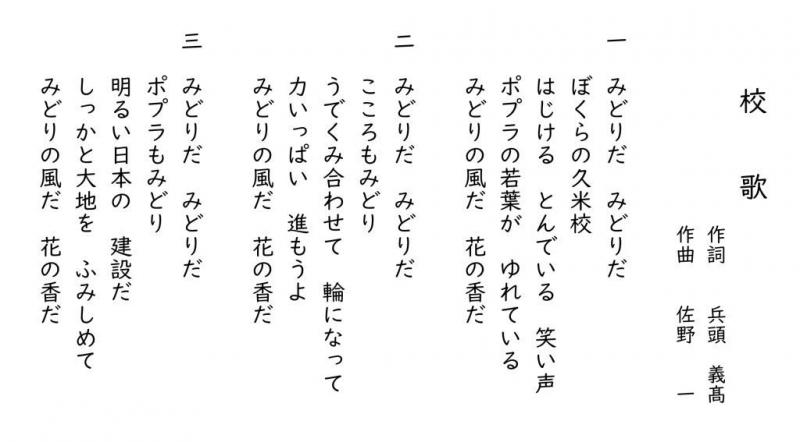 校歌
作詞　兵頭　義髙
作曲　佐野　一
一　みどりだ　みどりだ
ぼくらの久米校
はじける　とんでいる　笑い声
ポプラの若葉が　ゆれている
みどりの風だ　花の香だ
二　みどりだ　みどりだ
こころもみどり
うでくみ合わせて　輪になって
力いっぱい　進もうよ
みどりの風だ　花の香だ
三　みどりだ　みどりだ
ポプラもみどり
明るい日本の　建設だ
しっかと大地を　ふみしめて
みどりの風だ　花の香だ